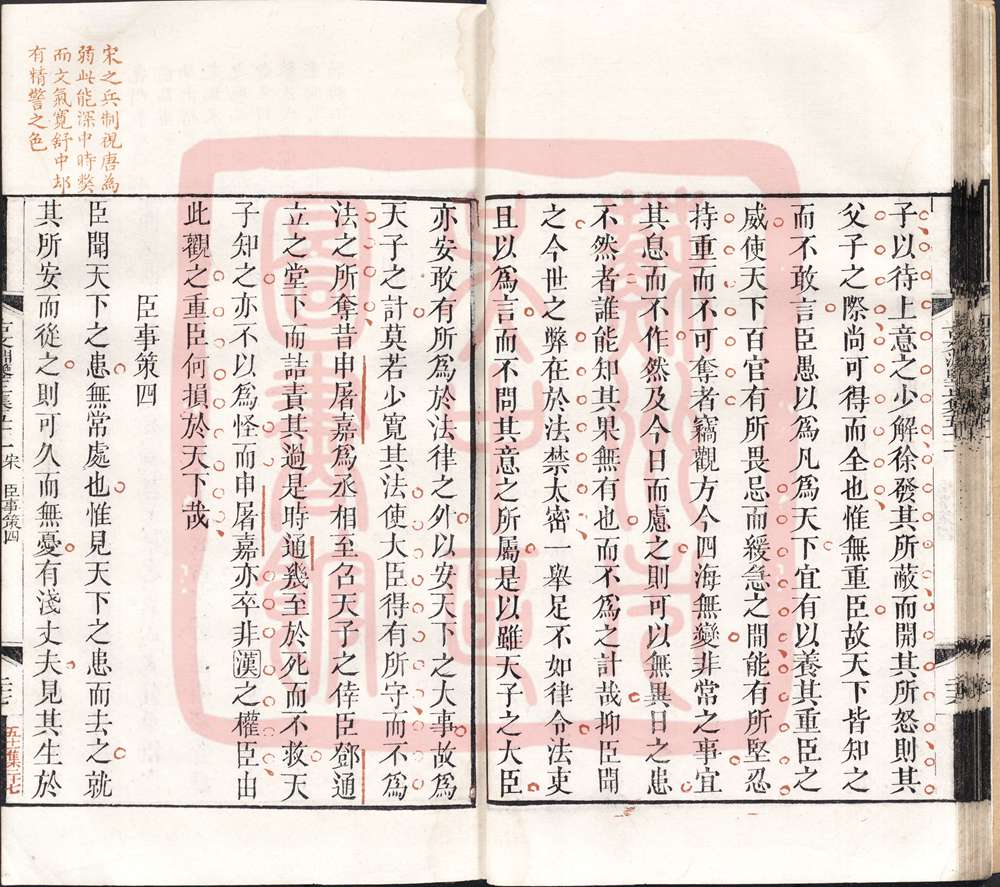 子以待上意之少解徐發其所蔽而開其所怒則其
父子之際尚可得而全也惟無重臣故天下皆知之
而不敢言臣愚以爲凡爲天下宜有以養其重臣之
威使天下百官有所畏忌而緩急之間能有所堅忍
持重而不可奪者竊觀方今四海無變非常之事宜
其息而不作然及今日而慮之則可以無異日之患
不然者誰能知其果無有也而不爲之計哉抑臣聞
之今世之弊在於法禁太密一舉足不如律令法吏
且以爲言而不問其意之所屬是以雖天子之大臣
亦安敢有所爲於法律之外以安天下之大事故爲
天子之計莫若少寬其法使大臣得有所守而不爲
法之所奪昔申屠嘉爲丞相至召天子之倖臣鄧通
立之堂下而詰責其過是時通幾至於死而不救天
子知之亦不以爲怪而申屠嘉亦卒非漢之權臣由
此觀之重臣何損於天下哉
臣事策四
臣聞天下之患無常處也惟見天下之患而去之就
其所安而從之則可久而無憂有淺丈夫見其生於
宋之兵制視唐為
弱此能深中時獘
而文氣寬舒中却
有精警之色
宋 臣事策四
五十二集 二十七